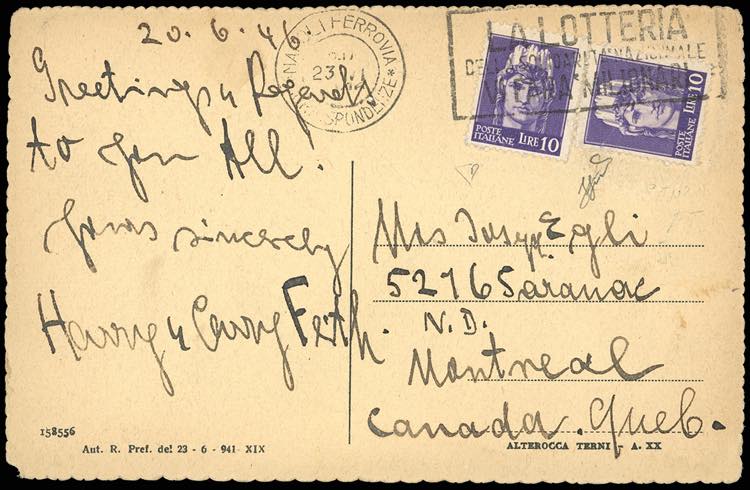 20. 6. 46
Greetings & Regards
to you All!
Yours sincerely
Harry & Carry Feith.
NAPOLI FERROVIA
CORRISPONDENZE
23
LA LOTTERIA
DELLA SOLIDARIETA NAZIONALE
POSTE ITALIANE LIRE 10
POSTE ITALIANE LIRE 10
Mrs Egli
5276 Saranac
N. D.
Montreal
Canada. Queb.
158556
Aut. R. Pref. del 23 - 6 - 941 - XIX
ALTEROCCA TERNI - A. XX